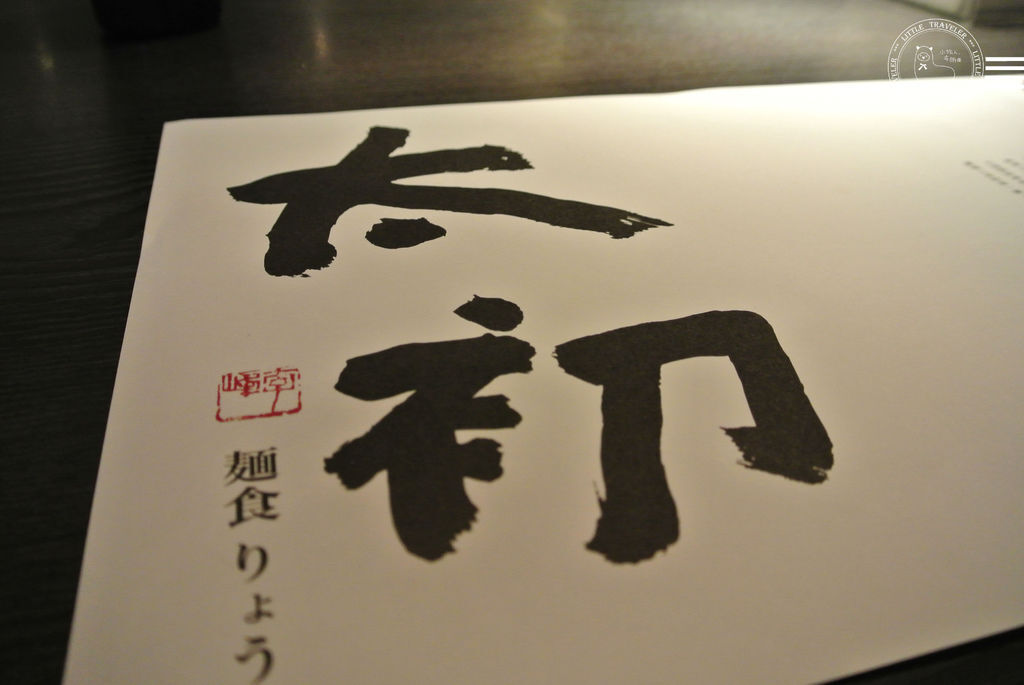 太初
麺食りょう
LITTLE TRAVELER